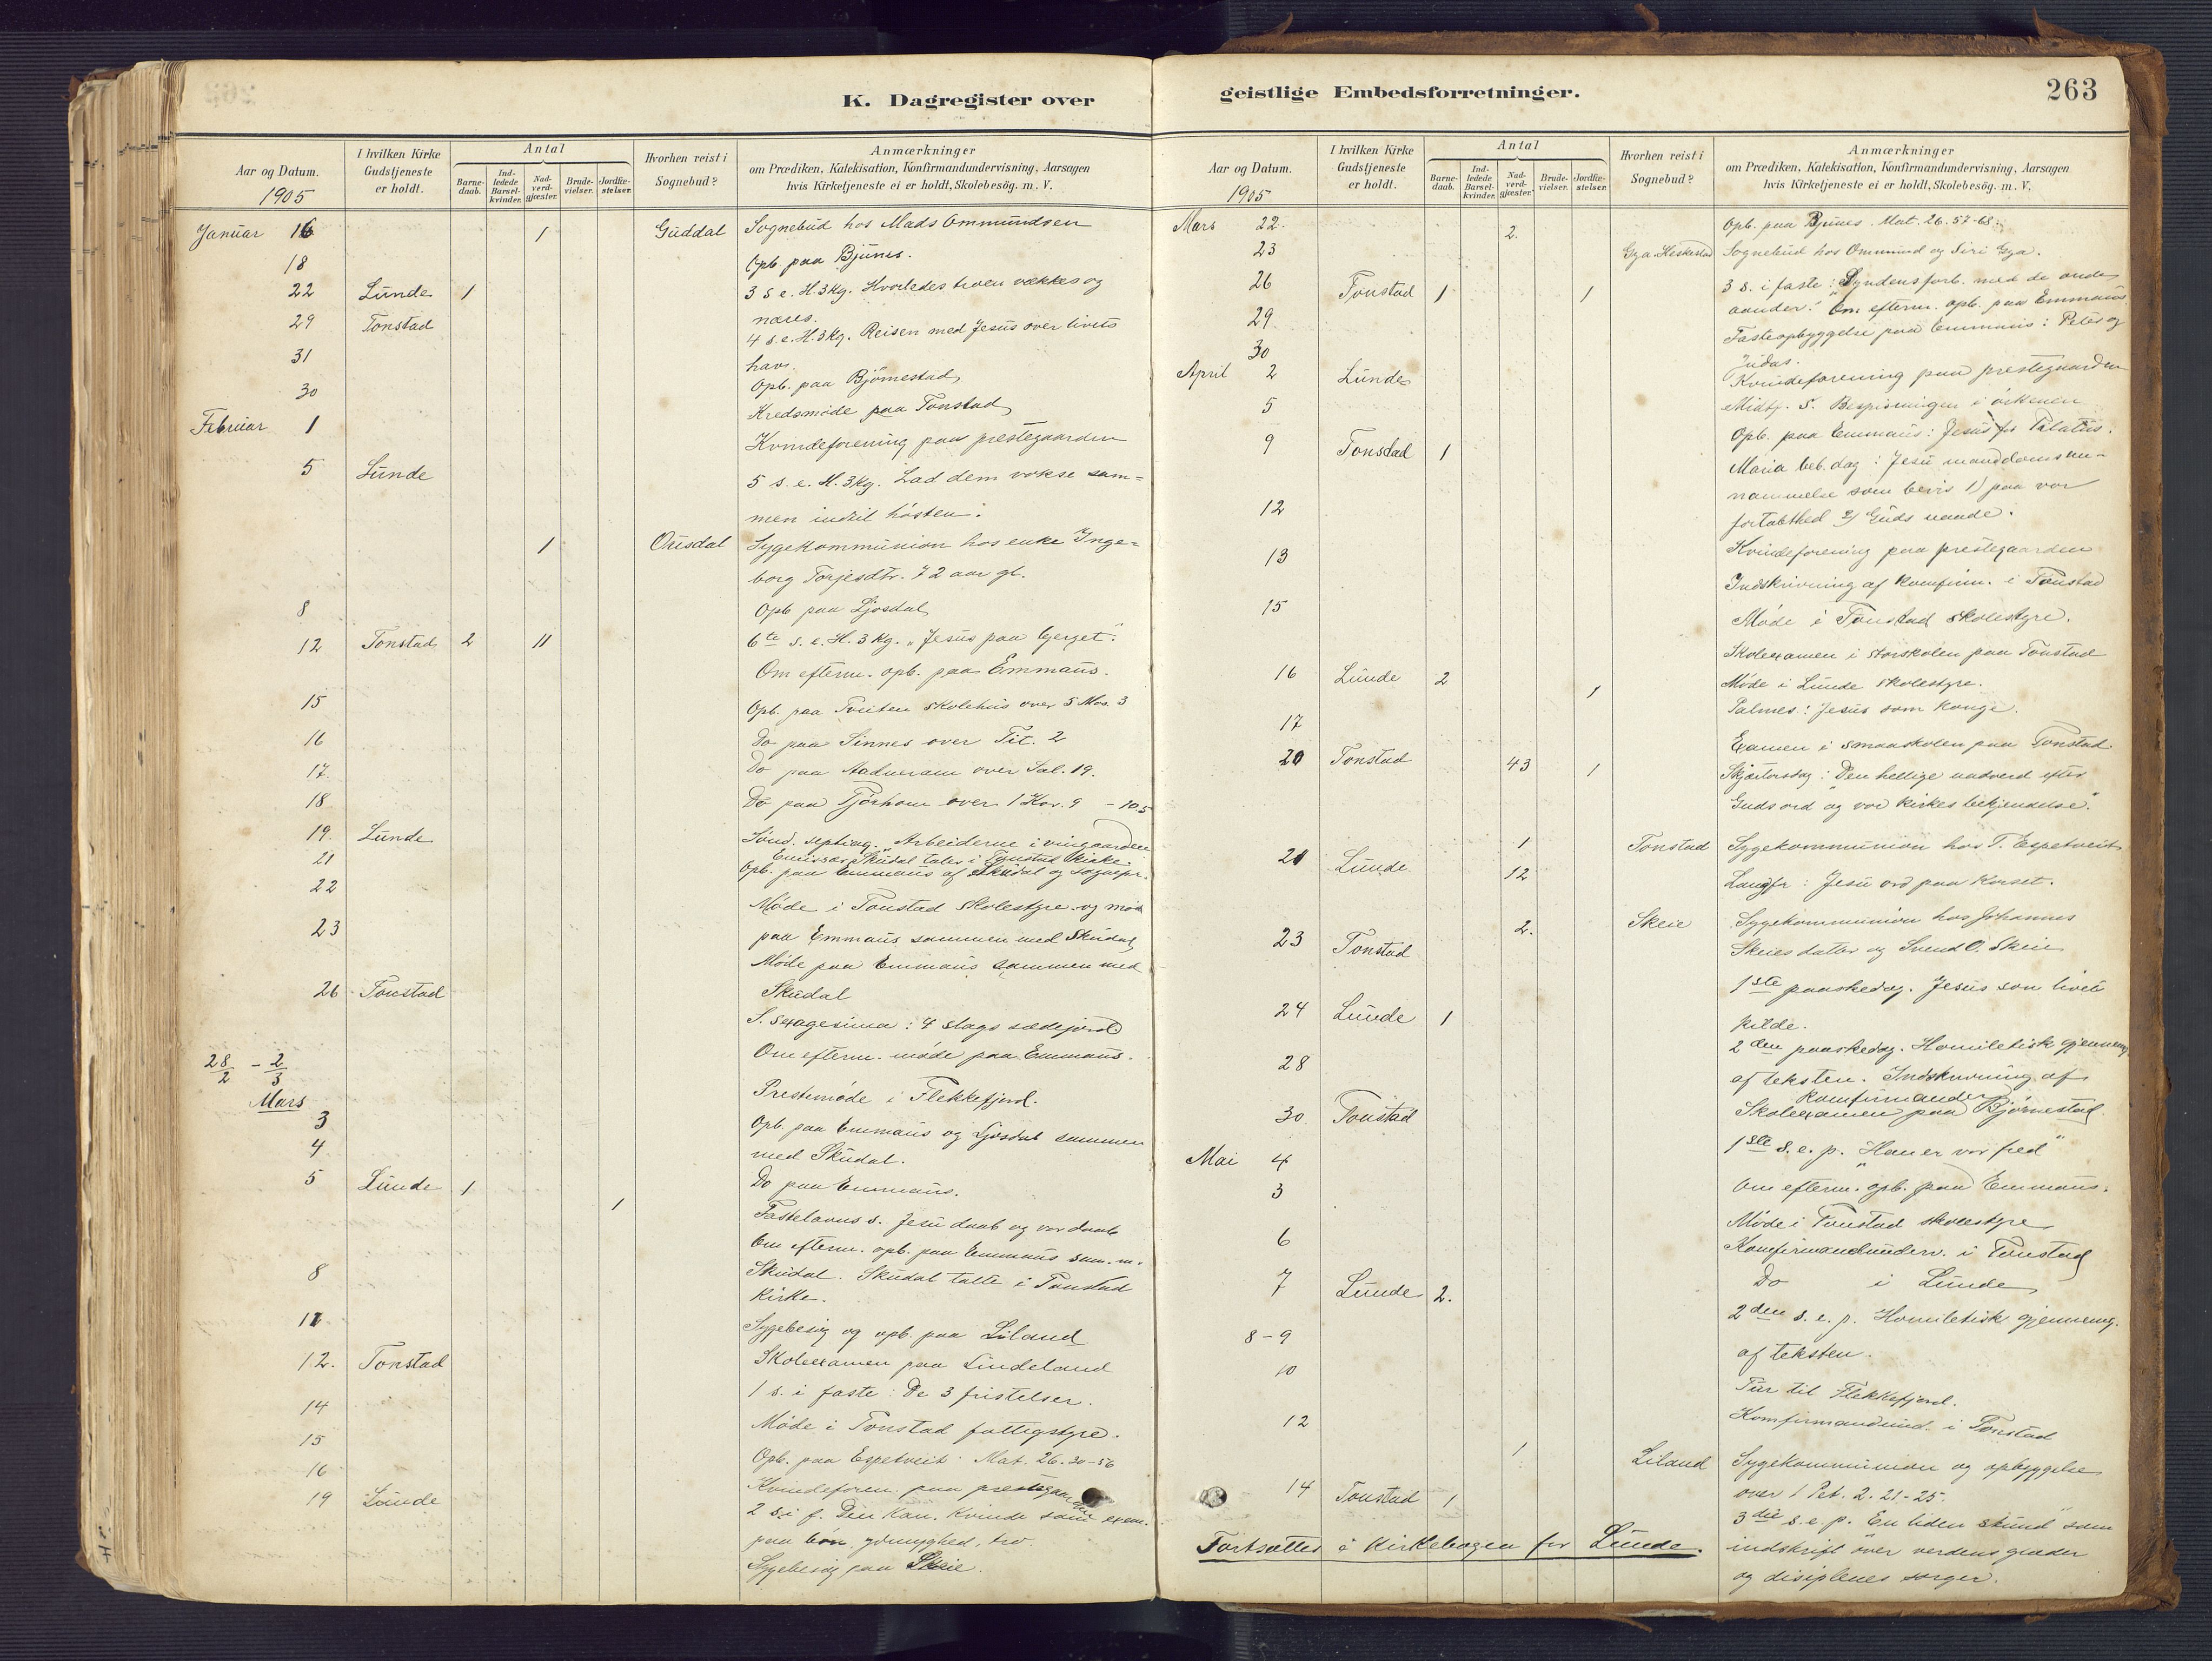 K. Dagregister over
Aar og Datum.
1905
I hvilken Kirke Gudstjeneste er holdt.
Antal
Barne-daab.
Ind-ledede Barsel-kvinder.
Nad-verd-gjæster.
Brude-vielser.
Jordfæ-stelser.
Hvorhen reist i Sognebud?
Anmærkninger
om Prædiken, Katekisation, Konfirmandundervisning, Aarsagen
hvis Kirketjeneste ei er holdt, Skolebesög. m. V.
Januar 16 1 Guddal Sognebud hos Mads Ommundsen
18 Opb. paa Bjunes.
22 Lunde 1 3 s. e. H.3Kg. Hvorledes troen vækkes og
næres.
29 Tonstad 4 s. e. H.3Kg. Reisen med Jesus over livets
hav.
31 Opb. paa Björnestad
30 Kredsmöde paa Tonstad
Februar 1 Kvindeforening paa prestegaarden
5 Lunde 5 s. e. H. 3Kg. Lad dem vokse sam=
men indtil hösten.
1 Ousdal Sygekommunion hos enke Inge=
borg Torjesdtr. 72 aar gl.
8 Opb paa Ljosdal
12 Tonstad 2 11 6te s. e. H. 3 Kg. „Jesus paa berget."
Om efterm. opb. paa Emmaus.
15 Opb. paa Tveiten skolehus over 5 Mos. 3
16 Do paa Sinnes over Tit. 2
17. Do paa Aadneram over Sal. 19.
18 Do paa Tjörhom over 1 Kor. 9 - 10,5
19. Lunde Sönd. septuag. „Arbeiderne i vingaarden
21 Emissær Skudal taler i Tonstad Kirke.
Opb. paa Emmaus af Skudal og sognepr.
22 Möde i Tonstad skolestyre og möde
23 paa Emmaus sammen med Skudal
Möde paa Emmaus sammen med
Skudal
26 Tonstad S. sexagesima: 4 slags sædejord
Om efterm. möde paa Emmaus.
28/2 - 2/3 Prestemöde i Flekkefjord.
Mars
3 Opb. paa Emmaus og Ljosdal sammen
med Skudal.
4 Do paa Emmaus.
5 Lunde 1 1 Fastelavns s. Jesu daab og vor daab
Om efterm. opb. paa Emmaus sam. m.
Skudal. Skudal talte i Tonstad
Kirke.
8 Sygebesög og opb. paa Liland
11 Skoleexamen paa Lindeland
12. Tonstad 1 s. i faste: De 3 fristelser.
14 Möde i Tonstad fattigstyre.
15 Opb. paa Espetveit: Mat. 26.30-56
16 Kvindeforen. paa prestegaarden
19 Lunde 2 s. i f. Den Kan. Kvinde som exem.
paa bön, ydmyghed, tro.
Sygebesög paa Skeie.
geistlige Embedsforretninger.
263
Aar og Datum.
1905
I hvilken Kirke Gudstjeneste er holdt.
Antal
Barne-daab.
Ind-ledede Barsel-kvinder.
Nad-verd-gjæster.
Brude-vielser.
Jordfæ-stelser.
Hvorhen reist i Sognebud?
Anmærkninger
om Prædiken, Katekisation, Konfirmandundervisning, Aarsagen
hvis Kirketjeneste ei er holdt, Skolebesög. m. V.
Mars 22. Opb. paa Bjunes. Mat. 26. 57-68.
23 2. Gya Heskestad Sognebud hos Ommund og Siri Gya.
26 Tonstad 1 1 3 s. i faste: Syndens forb. med de onde
aander. Om efterm. opb. paa Emmaus
29 Fasteopbyggelse paa Emmaus: Peter og
Judas.
30 Kvindeforening paa prestegaarden
April 2 Lunde Midtf. S. Bespisningen i örkenen
5 Opb. paa Emmaus: Jesus for Pilatus.
9 Tonstad 1 Maria beb. dag: Jesu manddoms an-
nammelse som bevis 1) paa vor
fortabthed 2) Guds naade.
12 Kvindeforening paa prestegaarden
13 Indskrivning af komfirm. i Tonstad
Möde i Tonstad skolestyre.
15 Skoleexamen i storskolen paa Tonstad
Möde i Lunde skolestyre.
16 Lunde 2 1 Palmes: Jesus som konge.
17 Examen i smaaskolen paa Tonstad.
20 Tonstad 43 1 Skjærtorsdag: „Den hellige nadverd efter
Guds ord og vor kirkes bekjendelse."
1 Tonstad Sygekommunion hos T. Espetveit
21 Lunde 12 Langfr: Jesu ord paa korset.
2. Skeie Sygekommunion hos Johannes
Skeies datter og Svend O. Skeie
23 Tonstad 1ste paaskedag. Jesus som livets
kilde.
24 Lunde 1 2den paaskedag. Homiletisk gjennemg.
af teksten. Indskrivning af
komfirmander
28 Skoleexamen paa Björnestad
30. Tonstad 1ste s. e. p. „Han er vor fred"
Om efterm. opb. paa Emmaus.
Mai 4 Möde i Tonstad skolestyre
3 Komfirmandunderv. i Tonstad
6 Do i Lunde
7 Lunde 2. 2den s. e. p. Homiletisk gjennemg.
af teksten.
8-9 Tur til Flekkefjord.
10 Komfirmandund. i Tonstad
12 1 Liland Sygekommunion og opbyggelse
over 1 Pet. 2. 21-25.
14 Tonstad 1 3die s. e. p. „En liden stund" som
indskrift over verdens glæder
og disiplenes sorger.
Fortsættes i Kirkebogen for Lunde.